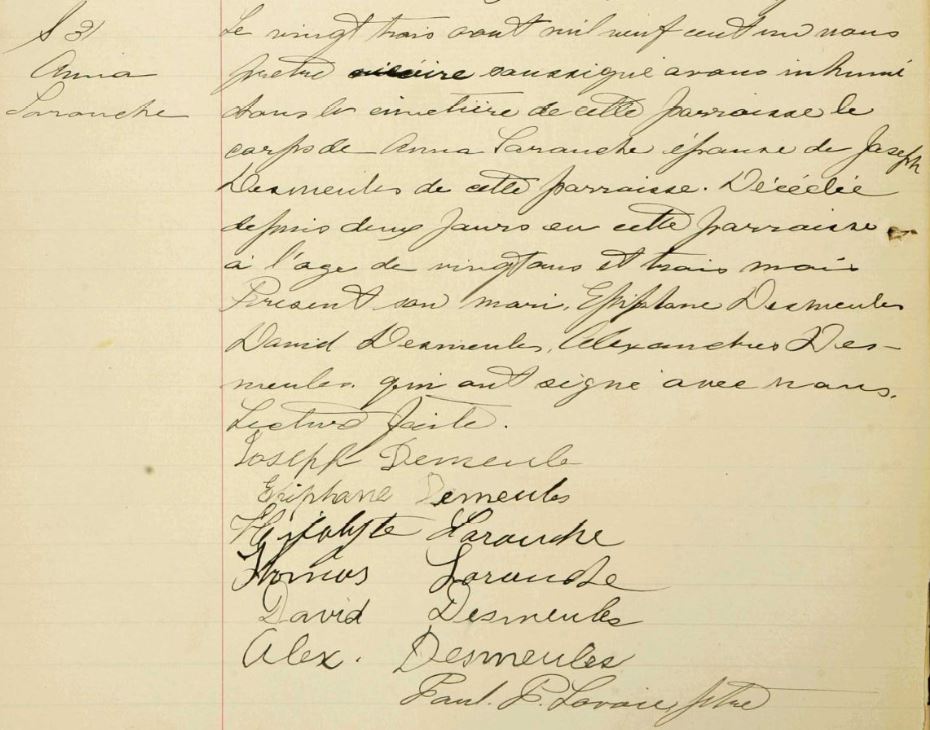 S 31
Anna
Larouche
Le vingt trois aout mil neuf cent un nous
prêtre vicaire soussigné avons inhumé
dans le cimetière de cette parroisse le
corps de Anna Larouche épouse de Joseph
Desmeules de cette parroisse. Décédée
depuis deux jours en cette parroisse
à l'age de vingt ans et trois mois
Présent son mari, Epiphane Desmeules
David Desmeules, Alexandre Des-
meules. qui ont signé avec nous.
Lecture faite.
Joseph Demeule
Epiphane Demeules
Hypolyte Larouche
Thomas Larouche
David Desmeules
Alex. Desmeules
Paul. P. Lavoie, ptre